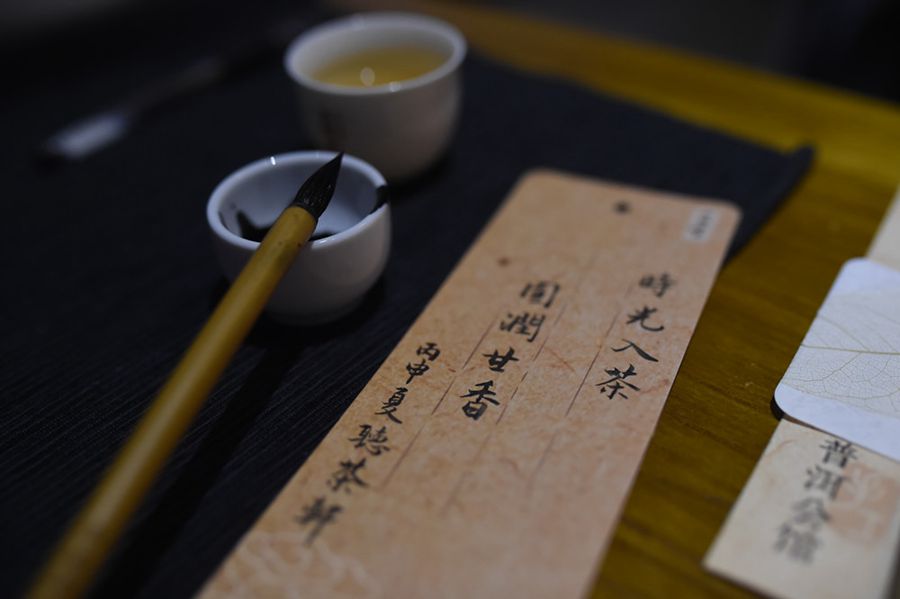 時光入茶
圓潤甘香
丙申夏聽茶軒
普洱公館